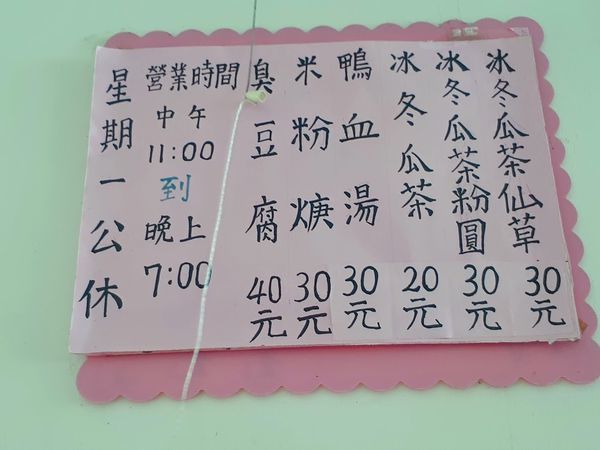 星期一公休
營業時間
中午
11:00
到
晚上
7:00
臭豆腐40元
米粉焿30元
鴨血湯30元
冰冬瓜茶20元
冰冬瓜茶粉圓30元
冰冬瓜茶仙草30元